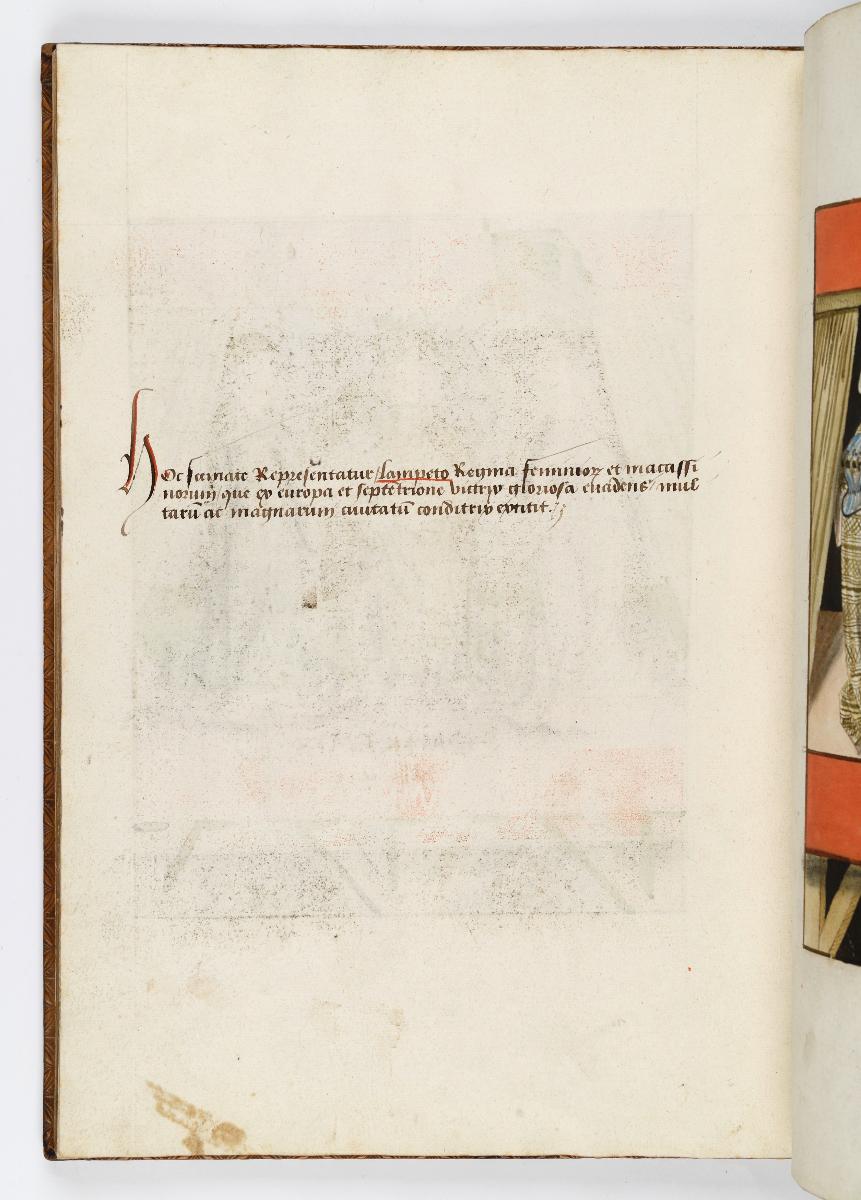 Hoc scemate Repręsētatur lampeto Regina feminior et macassi
norum que ex europa et septētrione victrix gloriosa euadens mul
tarū ac magnarum ciuitatū conditrix extitit.